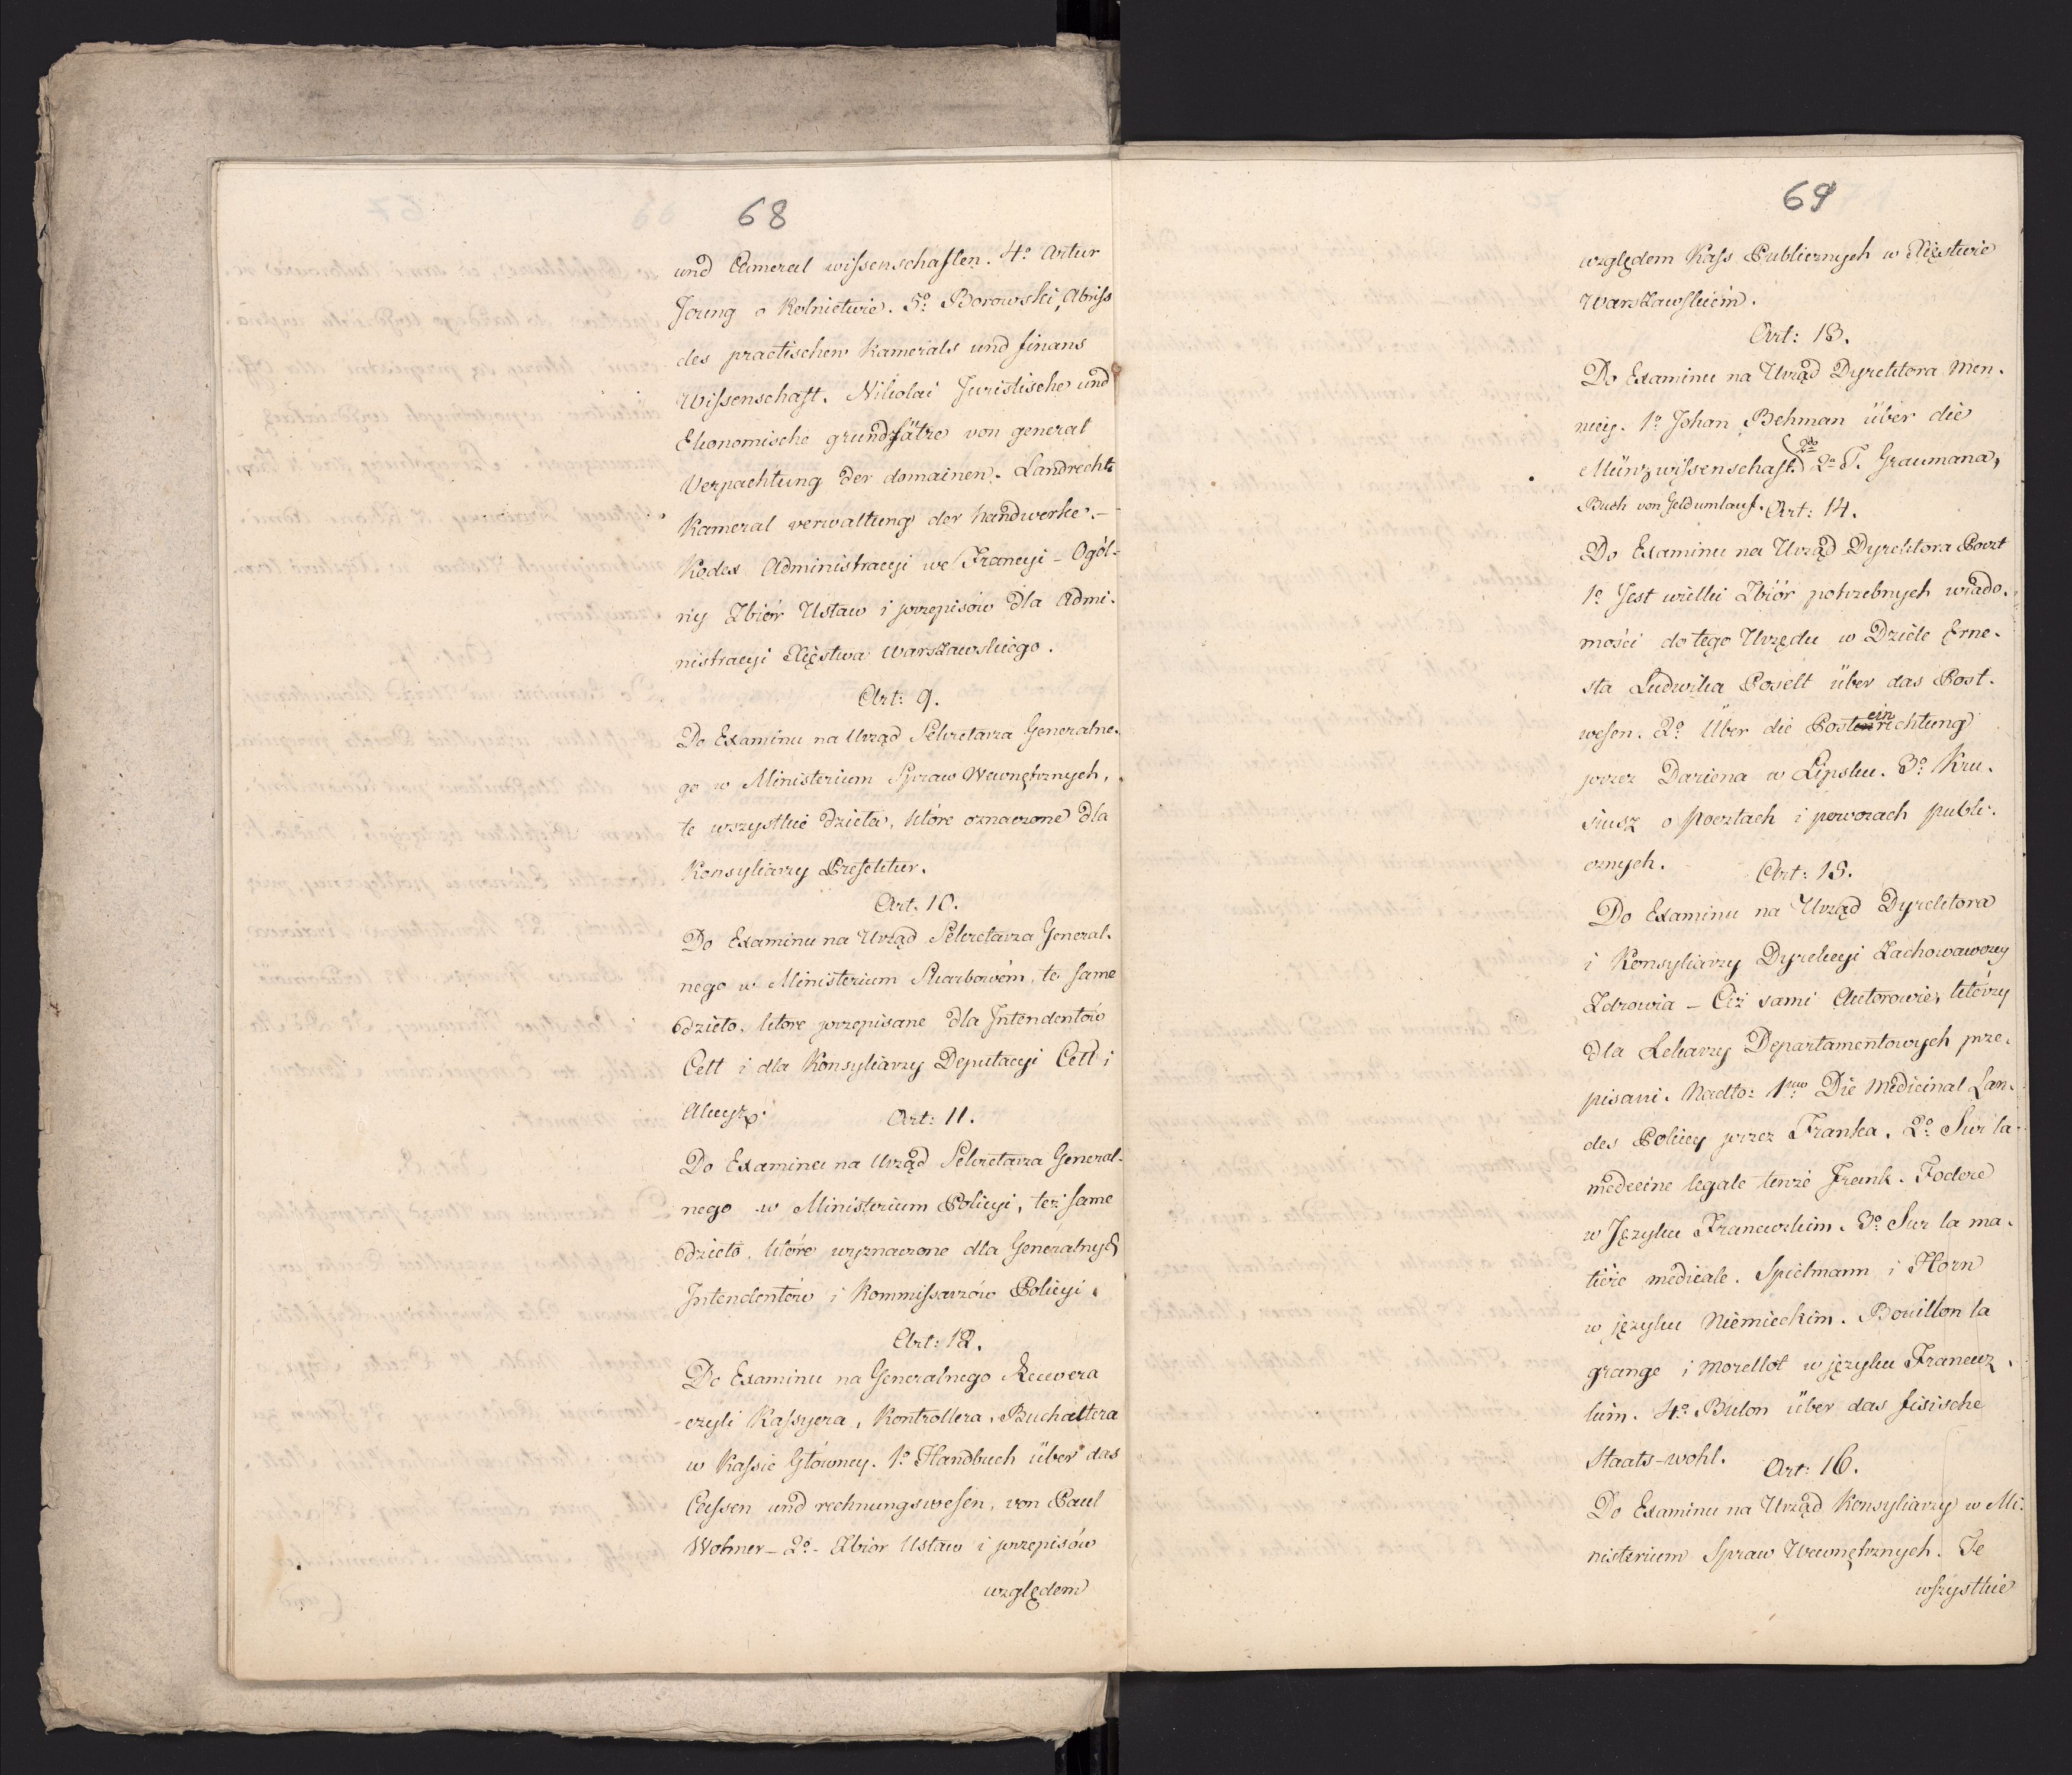 68
und Cameral wissenschaften. 4º Artur
Joung o Rolnictwie. 5º Borowski, Abriss
des practischen Kamerals und finans
Wissenschaft. Nikolai Juristische und
Ekonomische grundsätze von general
Verpachtung der domainen. Landrechts
Kameral verwaltung der handwerke. –
Kodex Administracyi we Francyi – Ogól-
ny Zbiór Ustaw i przepisów dla Admi-
nistracyi Xięstwa Warszawskiego.
Art: 9.
Do Examinu na Urząd Sekretarza Generalne-
go w Ministerium Spraw Wewnętrznych,
te wszystkie dzieła, które oznaczone dla
Konsyliarzy Prefektur.
Art: 10.
Do Examinu na Urząd Sekretarza General-
nego w Ministerium Skarbowém, te same
dzieło, które przepisane dla Intendentów
Cell i dla Konsyliarzy Deputacyi Cell i
Akcyz.
Art: 11.
Do Examinu na Urząd Sekretarza General-
nego w Ministerium Policyi, też same
dzieło, które wyznaczone dla Generalnych
Intendentów i Kommissarzów Policyi.
Art: 12.
Do Examinu na Generalnego Recewera
czyli Kassyera, Kontrollera, Buchaltera
w Kassie Główney. 1º Handbuch über das
Cassen und rechnungswesen, von Paul
Wohner – 2º – Zbior Ustaw i przepisów
względem
69
względem Kass Publicznych w Xięstwie
Warszawskiém.
Art: 13.
Do Examinu na Urząd Dyrektora Men-
nicy. 1º Johan Behman über die
Münzwissenschaft. 2do 2º T. Graumana,
Bush von Geldumlauf.
Art: 14.
Do Examinu na Urząd Dyrektora Poczt
1º Jest wielki Zbiór potrzebnych wiado-
mości do tego Urzędu w Dziele Erne-
sta Ludwika Poselt über das Post-
wesen. 2º Über die Posteinrichtung
przez Dariena w Lipsku. 3º Kru-
siusz o Pocztach i powozach publi-
cznych.
Art: 15.
Do Examinu na Urząd Dyrektora
i Konsyliarzy Dyrekcyi Zachowawczey
Zdrowia – Ciż sami Autorowie, którzy
dla Lekarzy Departamentowych prze-
pisani. Nadto: 1mo Die Medicinal Lan-
des Policey przez Franka. 2º Sur la
medecine legale tenże Frank. Fodere
w Języku Francuzkim. 3º Sur la ma-
tière médicale. Spielmann i Horn
w języku Niemieckim. Bouillon la
grange i Morellot w języku Francuz-
kim. 4º Bulon über das fisische
Staats-wohl.
Art: 16.
Do Examinu na Urząd Konsyliarzy w Mi-
nisterium Spraw Wewnętrznych. Te
wszystkie